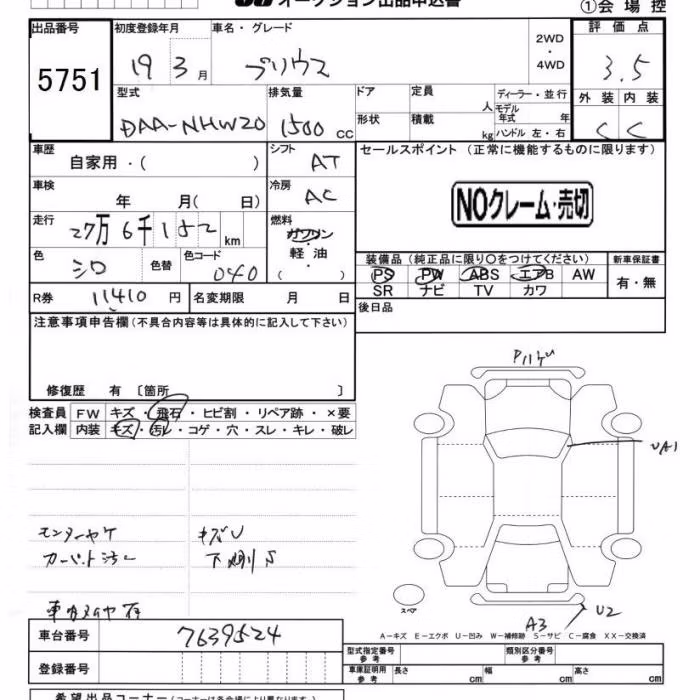 オークション出品申込書
①会場控
出品番号 初度登録年月 車名・グレード 2WD・4WD 評価点
5751 19 3月 プリウス 3.5
型式 排気量 ドア 定員 人 ディーラー・並行 外装 内装
DAA-NHW20 1500 cc 形状 積載 kg モデル年式 年 ハンドル 左・右 C C
車歴 自家用・( ) シフト AT セールスポイント(正常に機能するものに限ります)
車検 年 月( 日) 冷房 AC NOクレーム・売切
走行 27万6千152 km 燃料 ガソリン・軽油 ( )
装備品(純正品に限り○をつけてください) 新車保証書
色 シロ 色替 色コード 040 PS PW ABS エアB AW 有・無
SR ナビ TV カワ
R券 11410 円 名変期限 月 日 後日品
注意事項申告欄(不具合内容等は具体的に記入して下さい)
修復歴 有 〔箇所 〕
検査員 FW キズ・飛石・ヒビ割・リペア跡・×要
記入欄 内装 キズ・汚レ・コゲ・穴・スレ・キレ・破レ
UA1
キズU
下廻りS
スペア
A3 U2
A-キズ E-エクボ U-凹み W-補修跡 S-サビ C-腐食 XX-交換済
車台番号 7639524
登録番号
型式指定番号 参考 類別区分番号 参考
車庫証明用 参考 長さ cm 幅 cm 高さ cm
希望出品コーナー(コーナーは各会場により異なります)